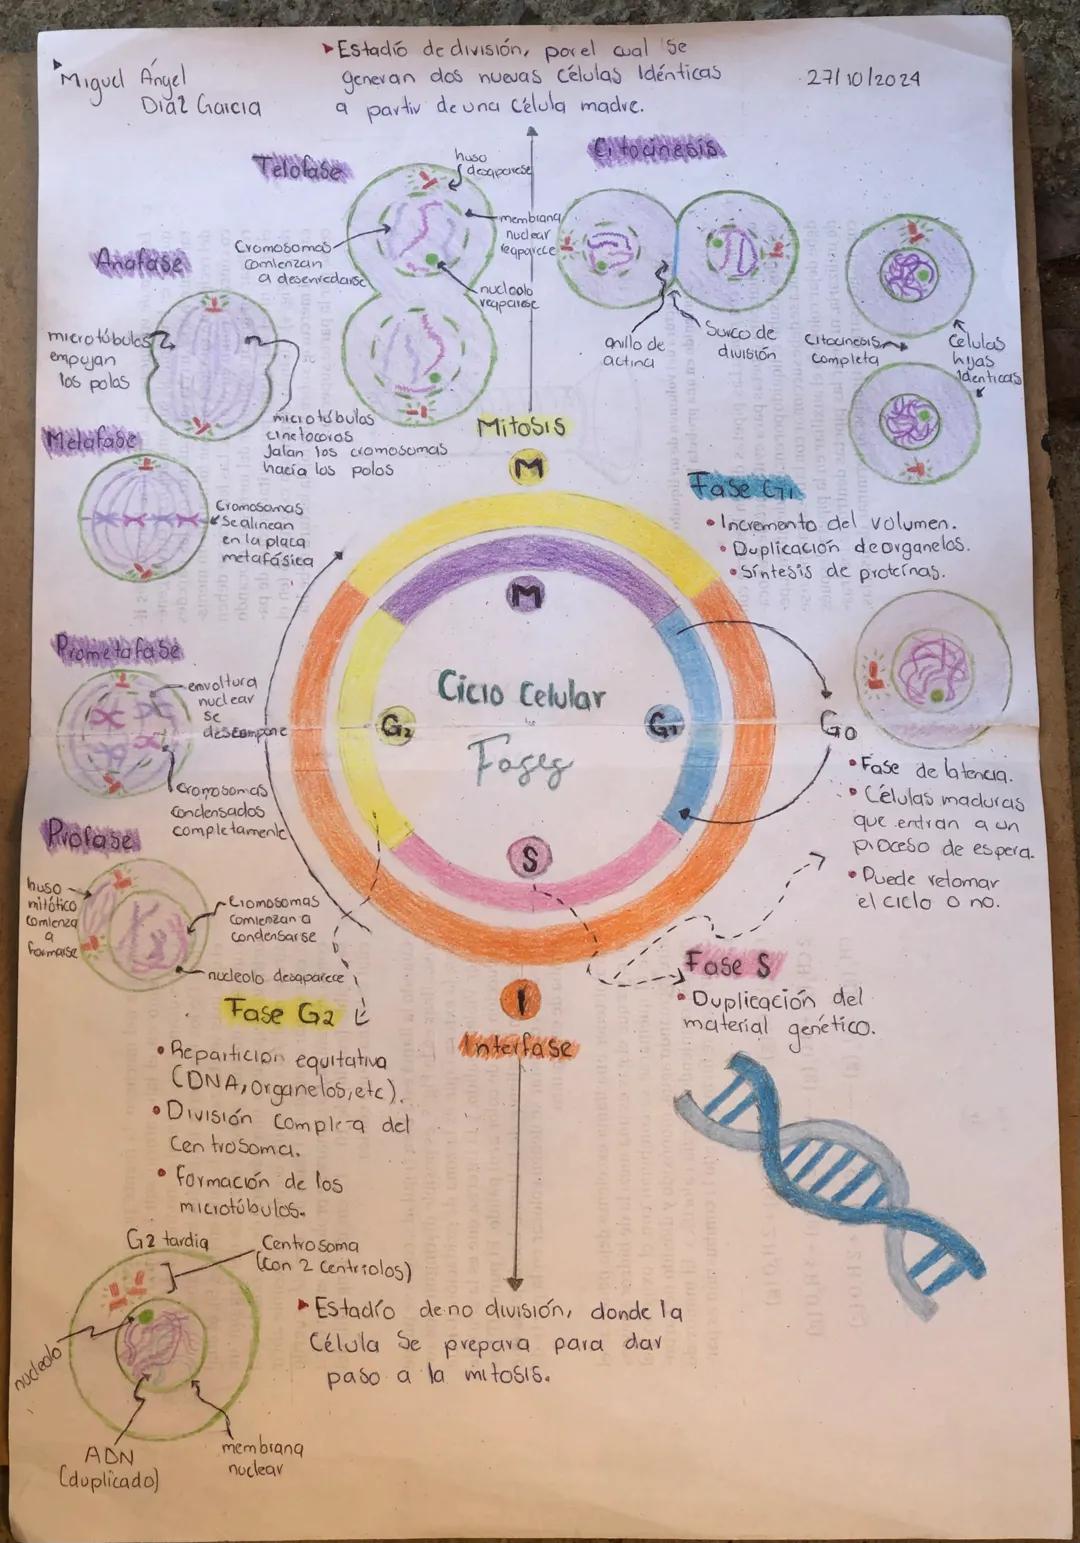 Miguel Ángel
Díaz Garcia
▸Estadío de división, por el cual se
generan dos nuevas células Idénticas
a partir de una célula madre.
27/10/2024
Telofase
huso
desaparese
Citocinesis
membrana
nuclear
reaparece
Cromosomas
comienzan
a desenredarse
nucleolo
reaparese
Anafase
microtúbulos
empujan
los polos
microtúbulos
cinetocoros
Jalan los cromosomas
hacía los polos
anillo de
actina
Surco de
división
Citocinesis
completa
Células
hijas
Identicas
Mitosis
M
Metafase
Cromosomas
Se alinean
en la placa
metafásica
Fase G1
• Incremento del volumen.
• Duplicación de organelos.
• Síntesis de proteínas.
Prometafase
envoltura
nuclear
se
descompone
cromosomas
condensados
completamente
M
Ciclo Celular
Fases
G2
G1
S
G0
• Fase de latencia.
• Células maduras
que entran a un
proceso de espera.
• Puede retomar
el ciclo o no.
Profase
huso
mitótico
comienza
a
formarse
Cromosomas
comienzan a
condensarse
nucleolo desaparece
Fase S
• Duplicación del
material genético.
I
Interfase
Fase G2
• Repartición equitativa
(DNA, organelos, etc).
• División completa del
Centrosoma.
• Formación de los
microtúbulos.
G2 tardia
Centrosoma
(con 2 centriolos)
nucleolo
ADN
(duplicado)
membrana
nuclear
▸Estadío de no división, donde la
Célula Se prepara para dar
paso a la mitosis.